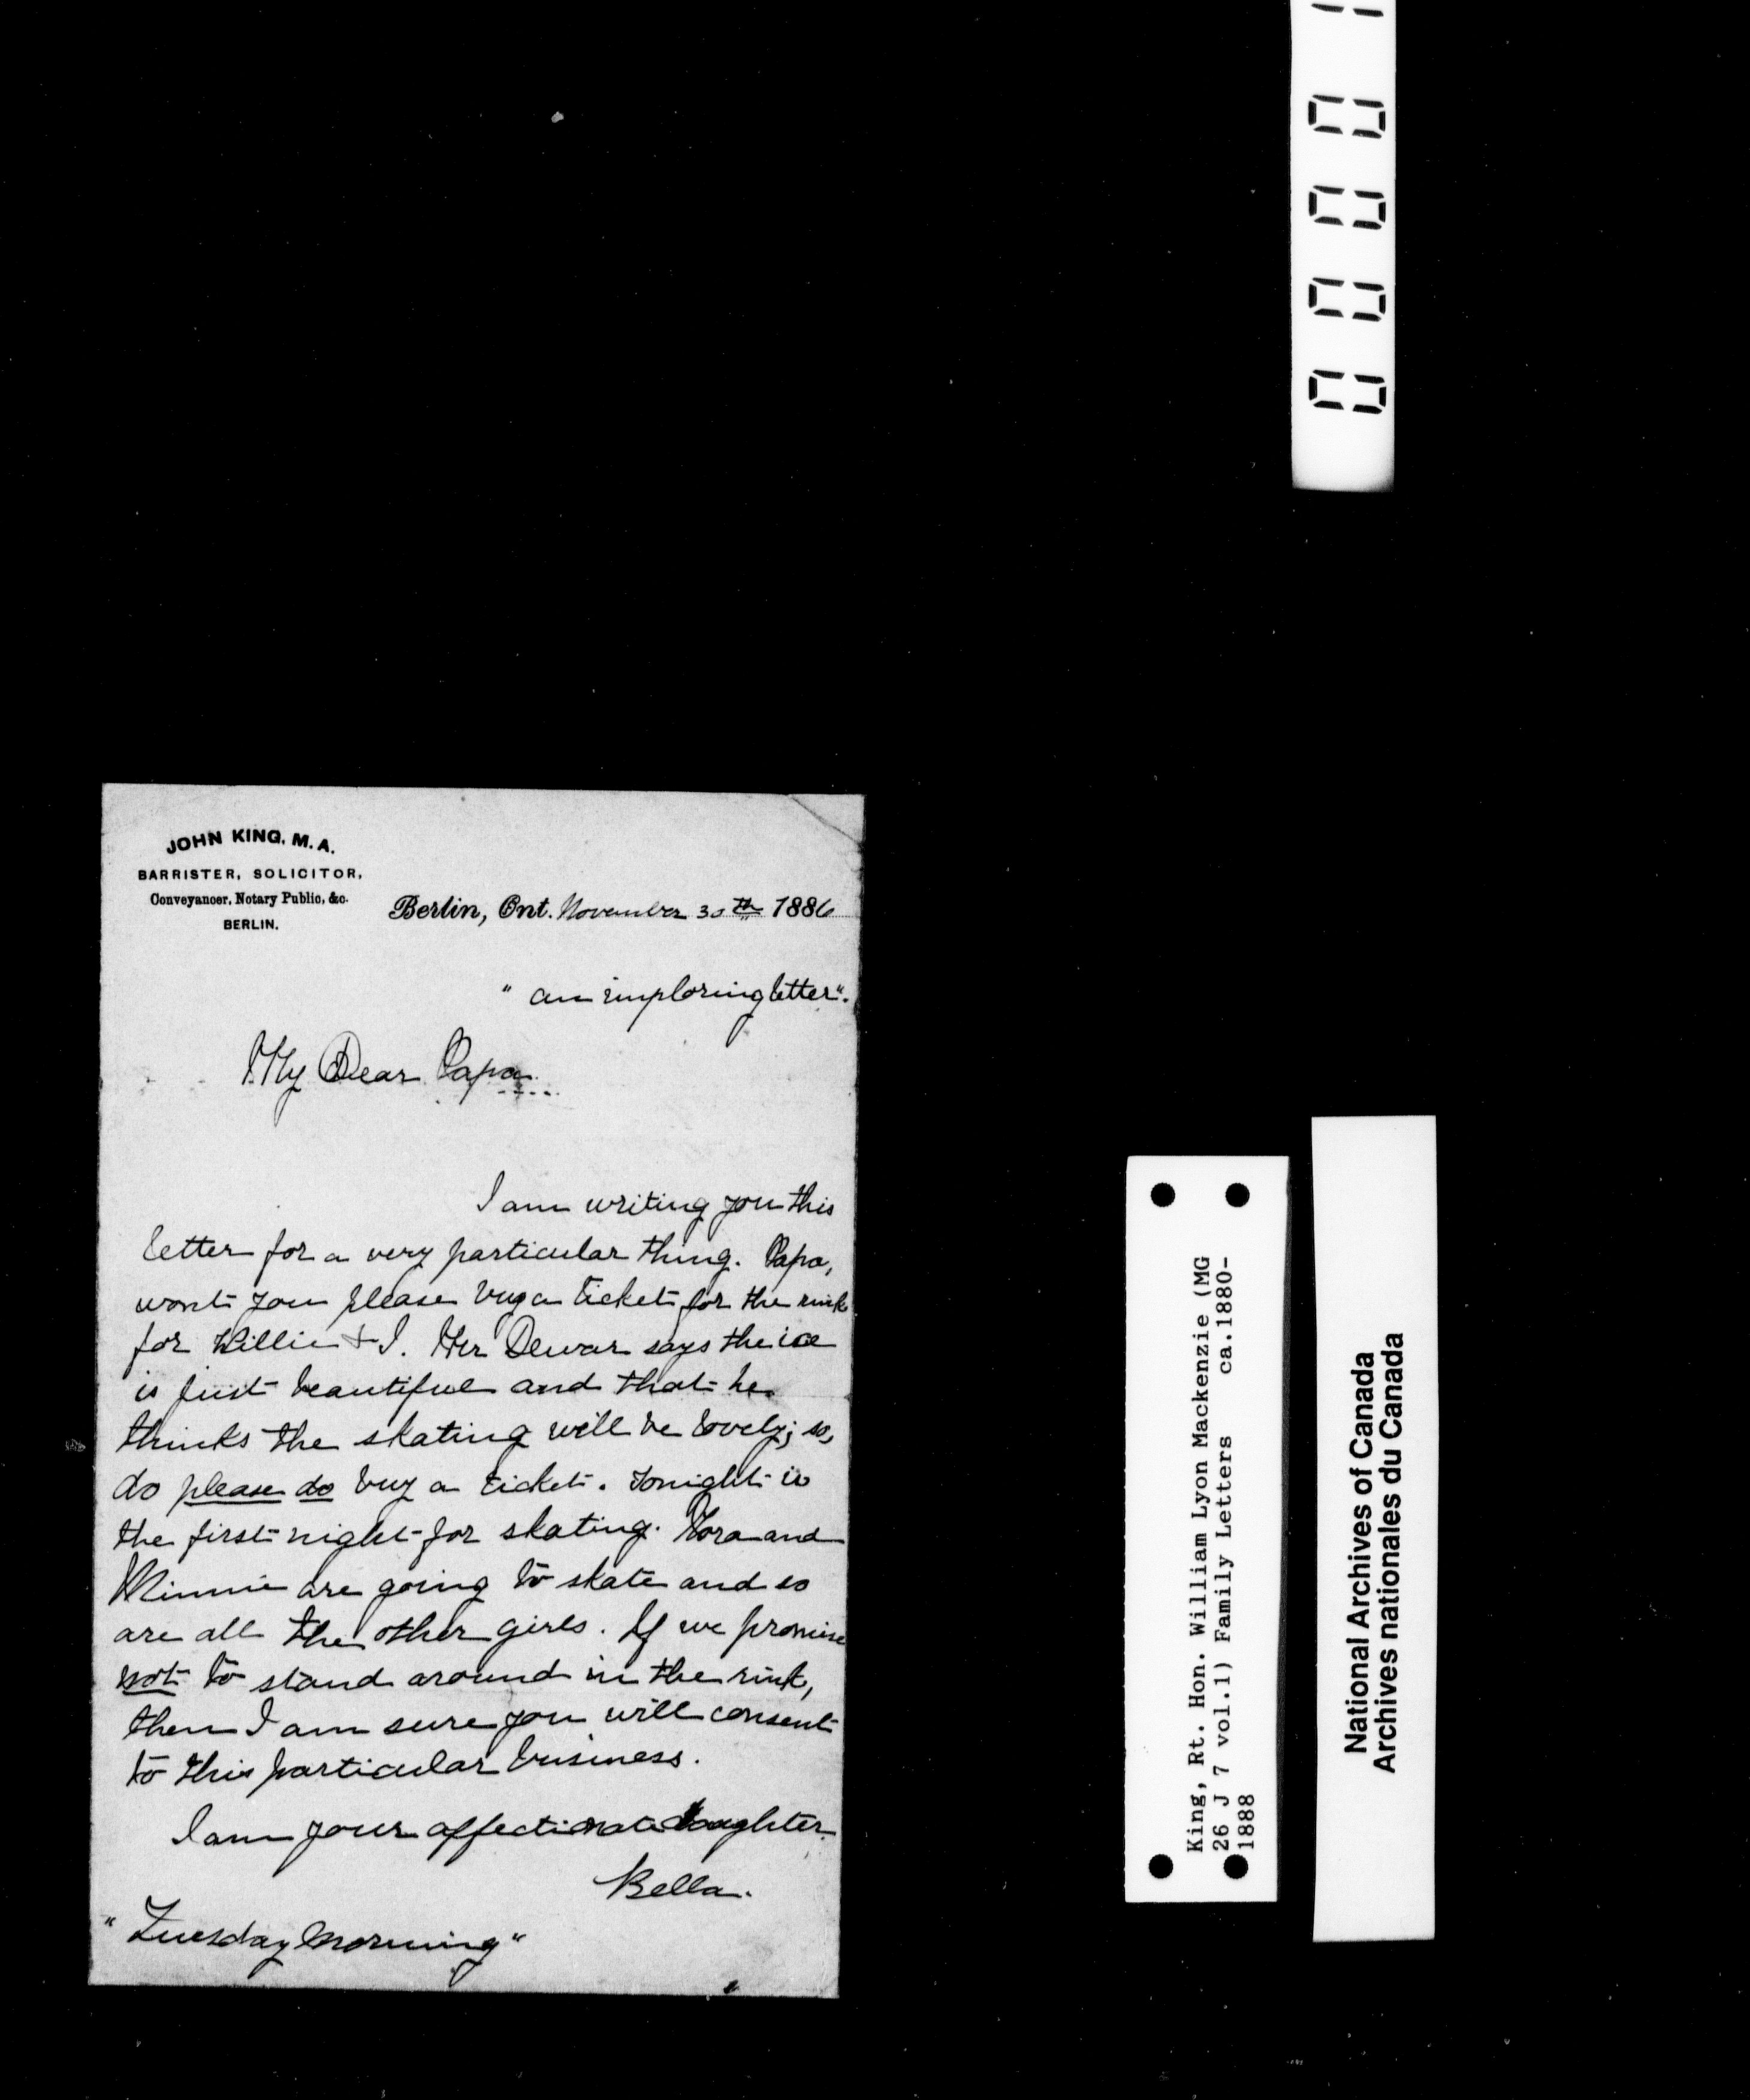 1 0 0 0 0
JOHN KING, M. A.
BARRISTER, SOLICITOR,
Conveyancer, Notary Public, &c.
BERLIN.
Berlin, Ont. November 30th 1886
" an imploring letter".
My Dear Papa
I am writing you this
letter for a very particular thing. Papa,
wont you please buy a ticket for the rink
for Willie & I. Mr Dewar says the ice
is just beautiful and that he
thinks the skating will be lovely; so,
do please do buy a ticket. Tonight is
the first night for skating. Nora and
Minnie are going to skate and so
are all the other girls. If we promise
not to stand around in the rink,
then I am sure you will consent
to this particular business.
I am your affectionate daughter.
Bella.
" Tuesday Morning "
King, Rt. Hon. William Lyon Mackenzie (MG
26 J 7 vol.1) Family Letters ca.1880-
1888
National Archives of Canada
Archives nationales du Canada